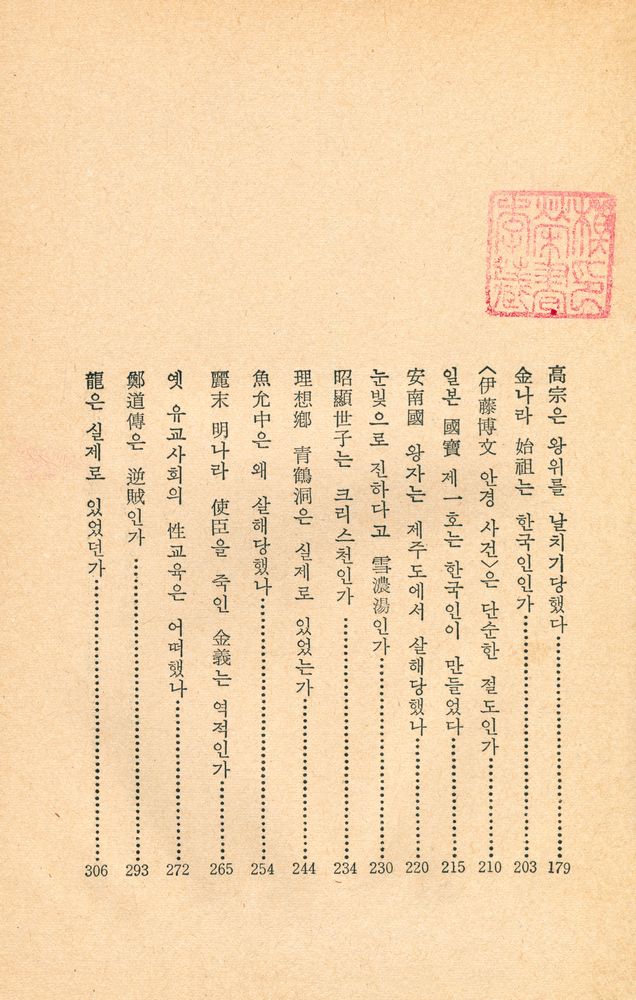 高宗은 왕위를 날치기당했다……179
金나라 始祖는 한국인인가……203
〈伊藤博文 안경 사건〉은 단순한 절도인가……210
일본 國寶 제一호는 한국인이 만들었다……215
安南國 왕자는 제주도에서 살해당했나……220
눈빛으로 진하다고 雪濃湯인가……230
昭顯世子는 크리스천인가……234
理想鄕 靑鶴洞은 실제로 있었는가……244
魚允中은 왜 살해당했나……254
麗末 明나라 使臣을 죽인 金義는 역적인가……265
옛 유교사회의 性교육은 어떠했나……272
鄭道傳은 逆賊인가……293
龍은 실제로 있었던가……306